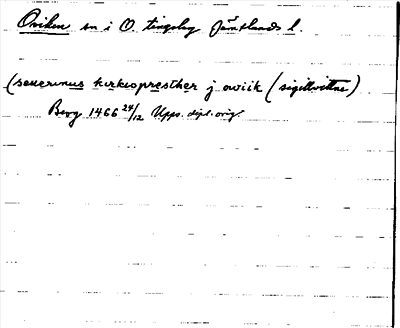 Oviken sn i O. tingslag Jämtlands l.
(seuerinus kirkeopresther j owiik (sigillvittne)
Berg 1466 24/12 Upps. dipl. orig.